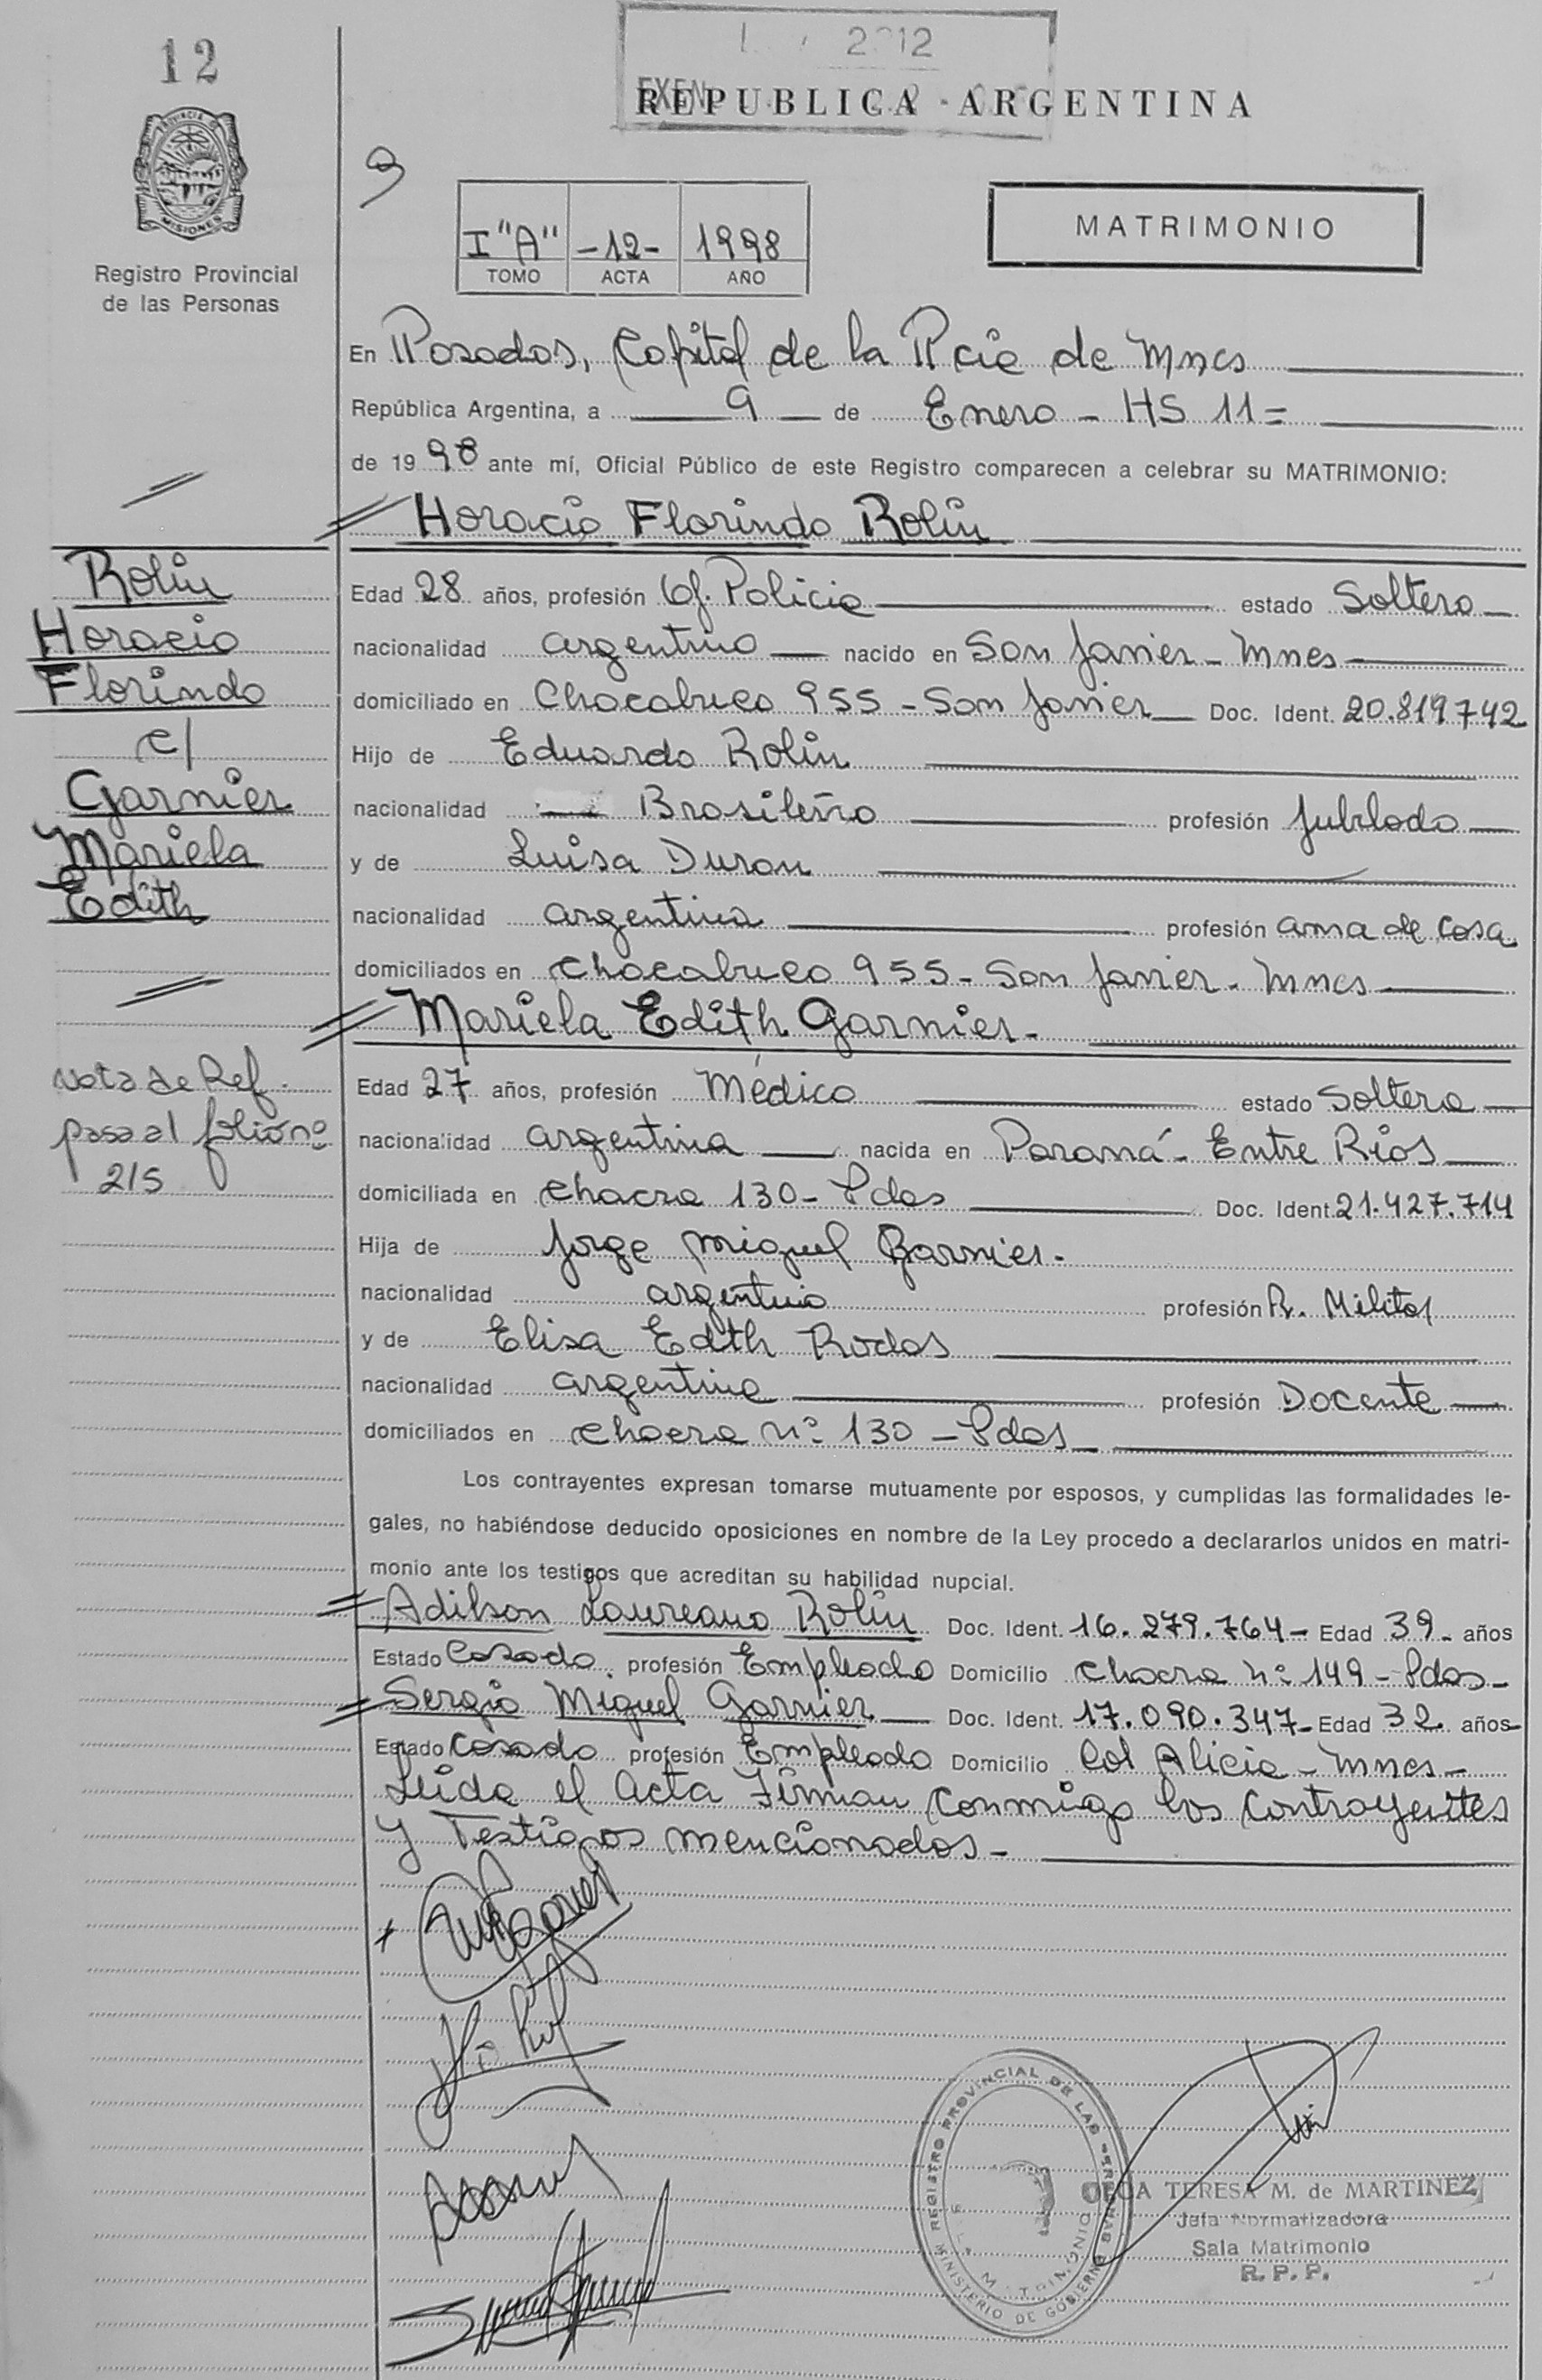 12
2012
EXEN
REPUBLICA ARGENTINA
PROVINCIA DE
MISIONES
Registro Provincial
de las Personas
9
I "A" -12- 1998
TOMO ACTA AÑO
MATRIMONIO
En Posadas, Capital de la Pcia de Mnes
República Argentina, a 9 de Enero - HS 11=
de 1998 ante mí, Oficial Público de este Registro comparecen a celebrar su MATRIMONIO:
Horacio Florindo Rolin
Rolin
Horacio
Florindo
c/
Garnier
Mariela
Edith
Edad 28 años, profesión Of. Policia estado Soltero
nacionalidad argentino nacido en San Javier - Mnes
domiciliado en Chacabuco 955 - San Javier Doc. Ident. 20.819742
Hijo de Eduardo Rolin
nacionalidad Brasileño profesión Jubilado
y de Luisa Duran
nacionalidad argentina profesión ama de casa
domiciliados en Chacabuco 955 - San Javier - Mnes
Mariela Edith Garnier -
Nota de Ref.
pasa al folio nº
215
Edad 27 años, profesión Médica estado Soltera
nacionalidad argentina nacida en Paraná - Entre Rios
domiciliada en Chacra 130 - Pdas Doc. Ident. 21.427.714
Hija de Jorge Miguel Garnier -
nacionalidad argentino profesión R. Militar
y de Elisa Edith Rodas
nacionalidad argentina profesión Docente
domiciliados en Chacra nº 130 - Pdas
Los contrayentes expresan tomarse mutuamente por esposos, y cumplidas las formalidades le-
gales, no habiéndose deducido oposiciones en nombre de la Ley procedo a declararlos unidos en matri-
monio ante los testigos que acreditan su habilidad nupcial.
Adilson Laureano Rolin Doc. Ident. 16.279.764 - Edad 39 - años
Estado Casado. profesión Empleado Domicilio Chacra nº 149 - Pdas -
Sergio Miguel Garnier Doc. Ident. 17.090.347 - Edad 32 años
Estado Casado profesión Empleado Domicilio Col Alicia - Mnes -
Leida el Acta Firman Conmigo los Contrayentes
y Testigos mencionados -
REGISTRO PROVINCIAL DE LAS PERSONAS
SALA MATRIMONIO
MINISTERIO DE GOBIERNO
OLGA TERESA M. de MARTINEZ
Jefa Normatizadora
Sala Matrimonio
R. P. P.